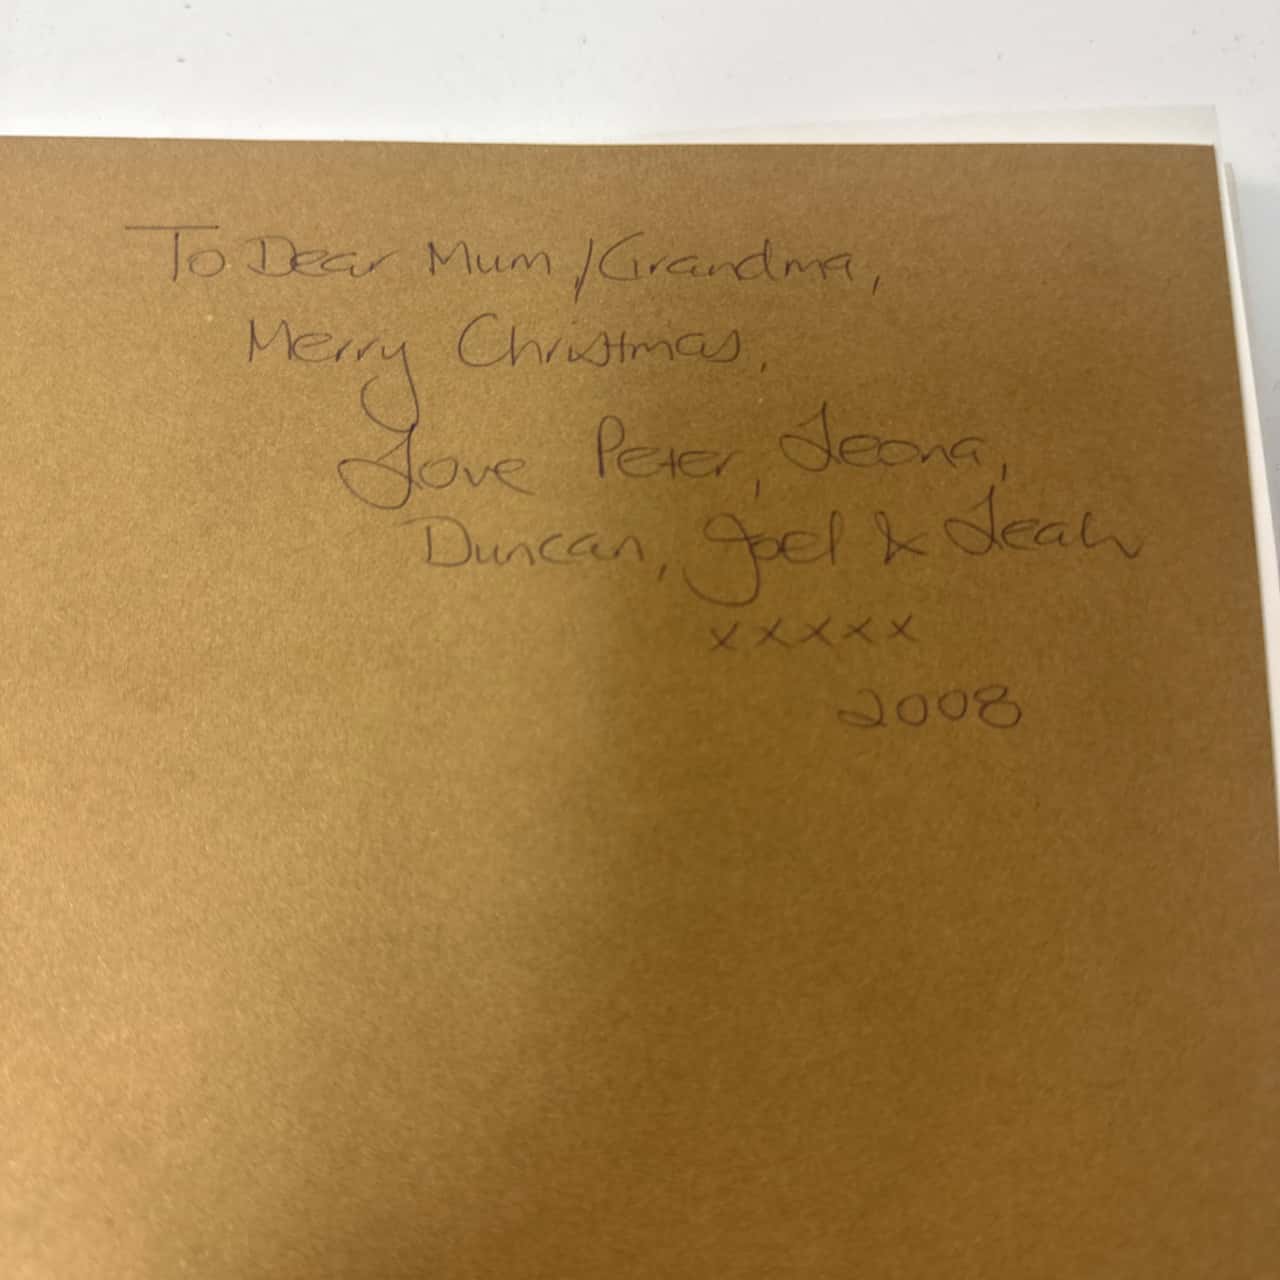 To Dear Mum/Grandma,
Merry Christmas,
Love Peter, Leona,
Duncan, Joel & Leah
xxxxx
2008